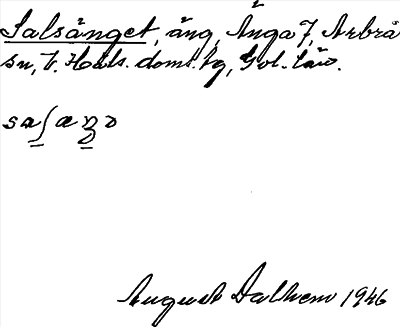 Salsänget, äng, Änga 7, Arbrå
sn, V. Häls. doms. hg, Gvl. län.
August Dalhem 1946